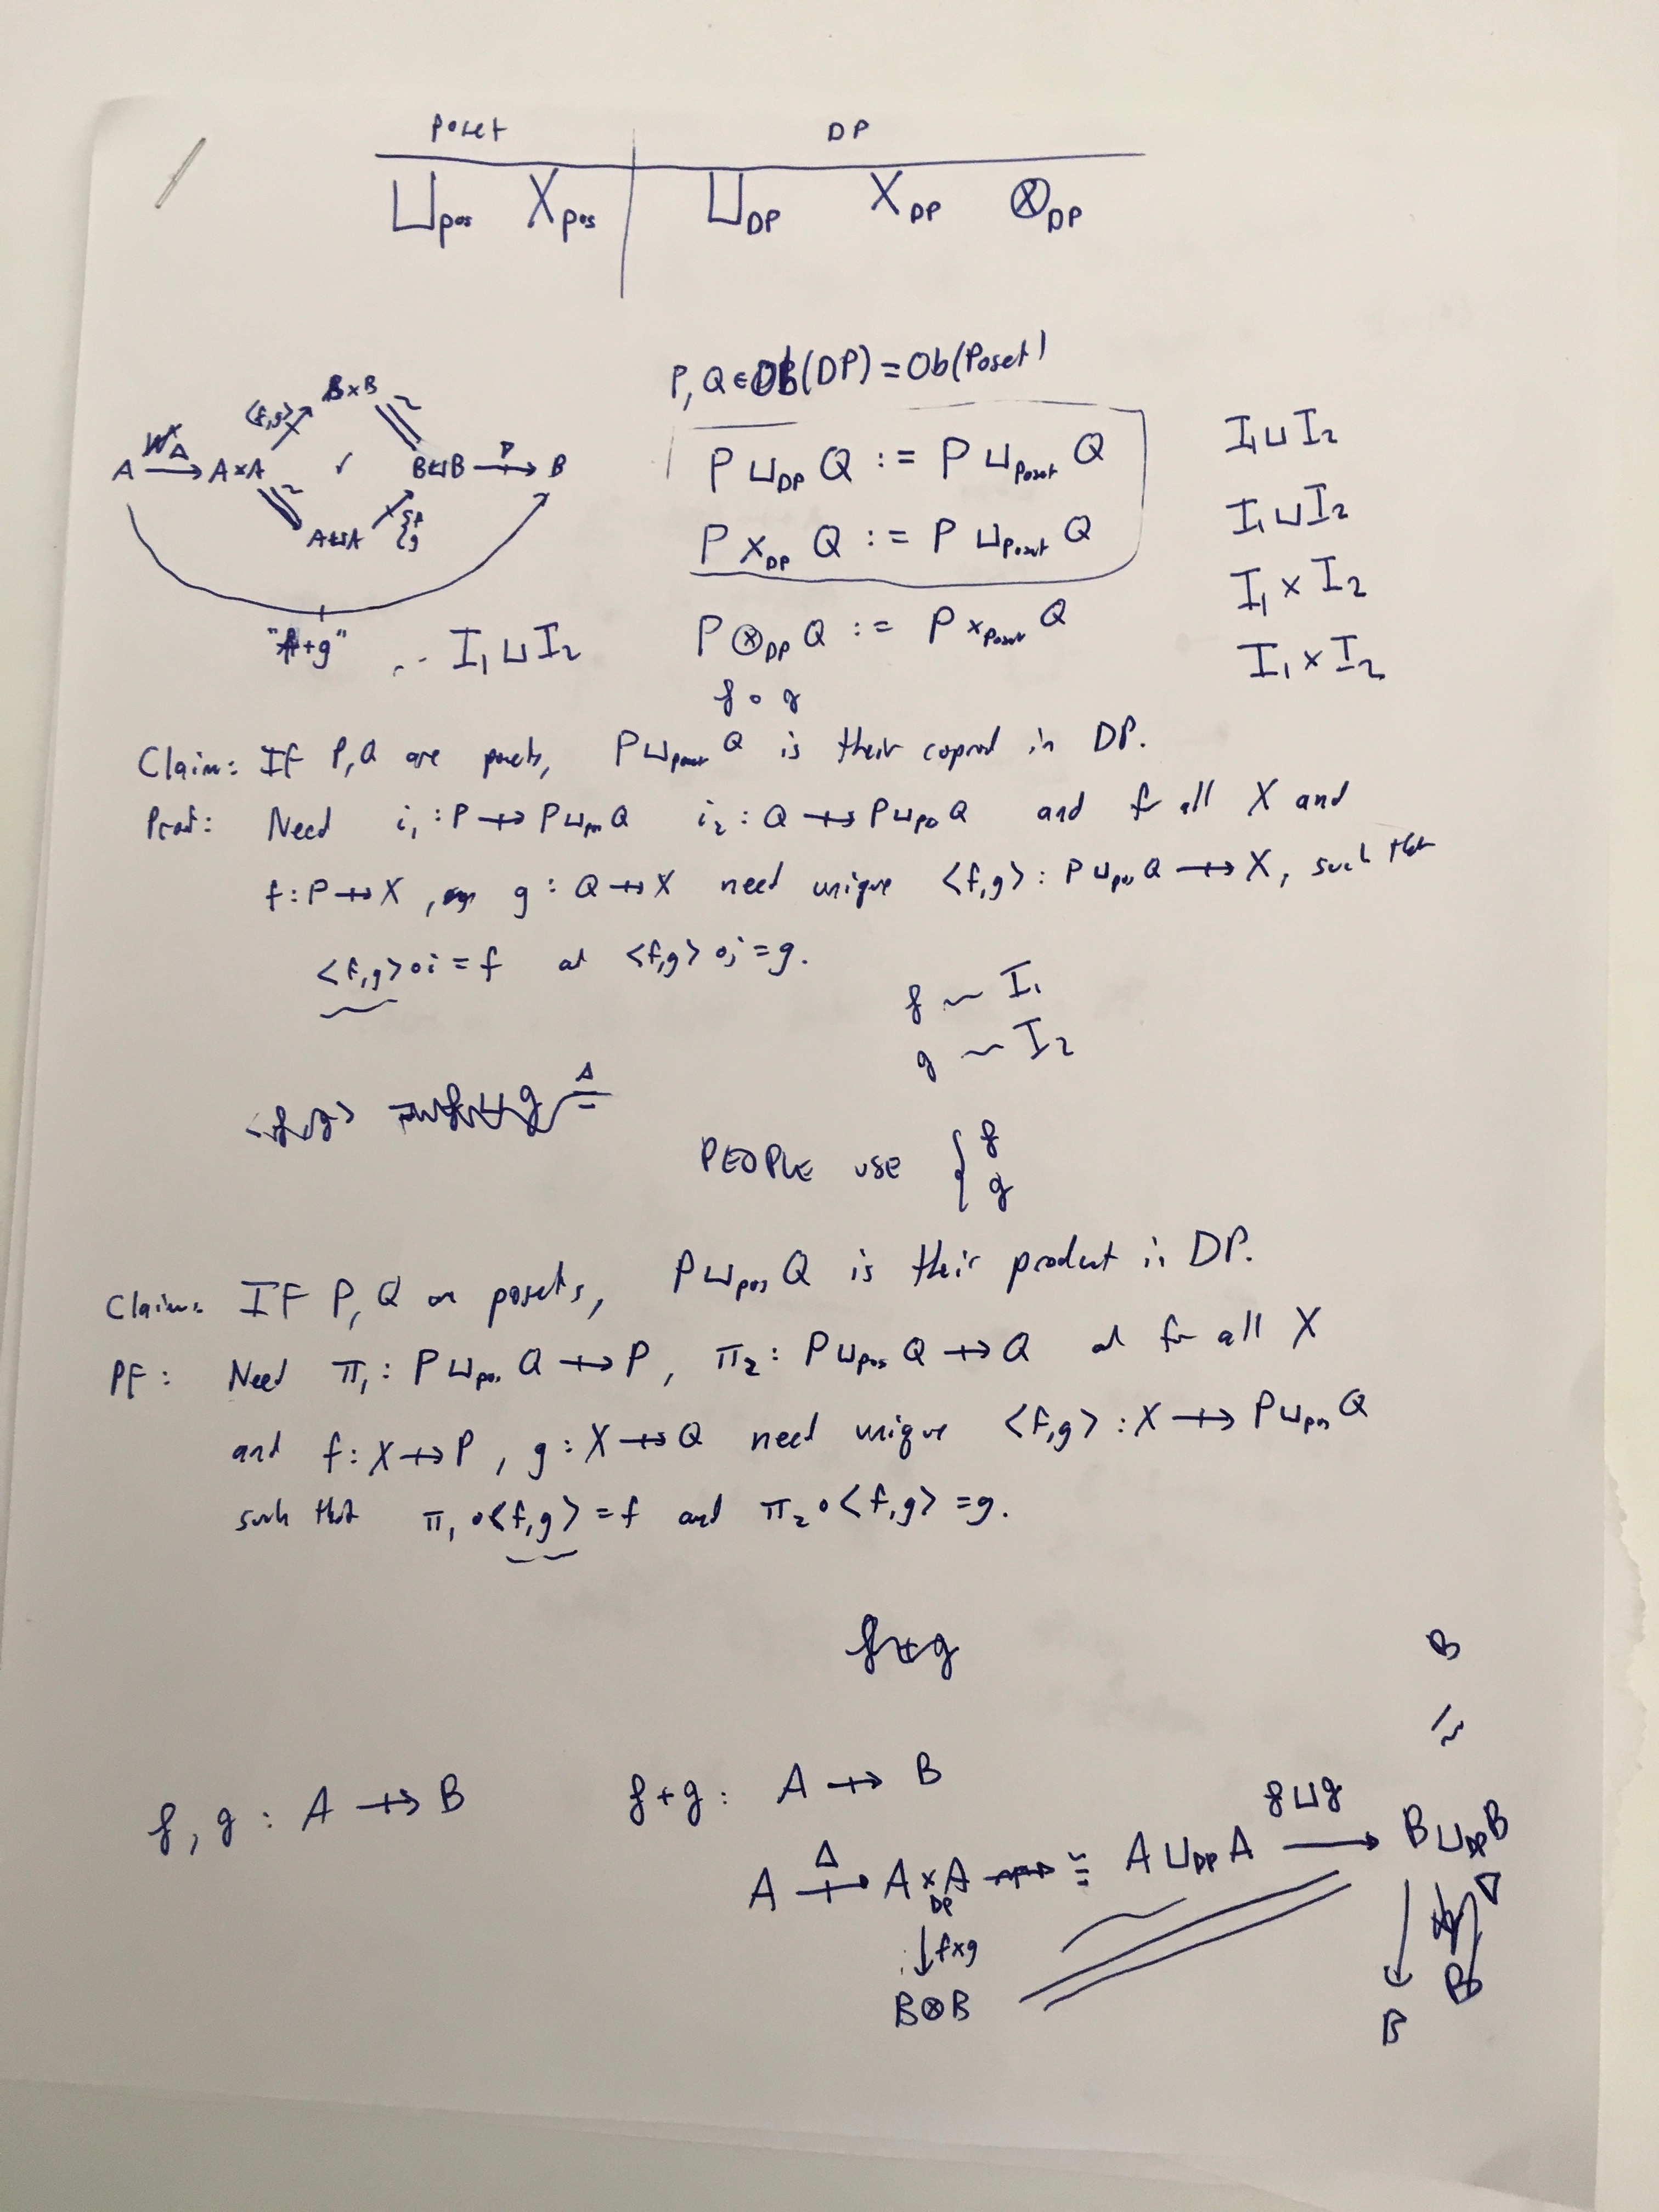 Poset DP
⊔pos Xpos ⊔DP XDP ⊗DP
P, Q ∈ Ob(DP) = Ob(Poset)
P ⊔DP Q := P ⊔Poset Q
P ×DP Q := P ⊔Poset Q
P ⊗DP Q := P ×Poset Q
f ∘ g
I₁ ⊔ I₂
I₁ ⊔ I₂
I₁ × I₂
I₁ × I₂
B×B
⟨f,g⟩
A Δ A×A ✓ B⊔B B
A⊔A { f g
"f+g" I₁ ⊔ I₂
Claim: IF P, Q are posets, P ⊔poset Q is their coprod in DP.
Proof: Need i₁ : P ⇸ P ⊔pos Q i₂ : Q ⇸ P ⊔po Q and for all X and
f : P ⇸ X , g : Q ⇸ X need unique <f,g> : P ⊔pos Q ⇸ X, such that
<f,g> ∘ i = f and <f,g> ∘ j = g.
f ~ I₁
g ~ I₂
PEOPLE USE { f g
Claim: IF P, Q are posets, P ⊔pos Q is their product in DP.
PF: Need π₁ : P ⊔pos Q ⇸ P, π₂ : P ⊔pos Q ⇸ Q and for all X
and f : X ⇸ P, g : X ⇸ Q need unique <f,g> : X ⇸ P ⊔pos Q
such that π₁ ∘ <f,g> = f and π₂ ∘ <f,g> = g.
f+g
B
≅
f, g : A ⇸ B f+g : A ⇸ B
f ⊔ g
A Δ⇸ A ×DP A ≅ A ⊔DP A → B ⊔DP B
↓ f×g
B⊗B
B B